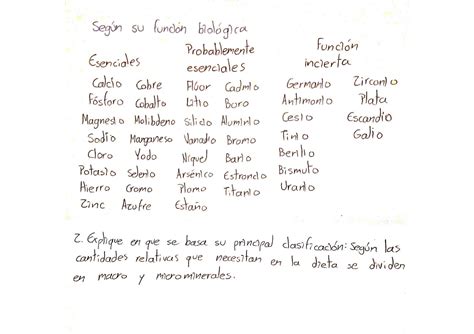 Según su función biológica
Esenciales Probablemente esenciales Función incierta
Calcio Cobre Flúor Cadmio Germanio Zirconio
Fósforo Cobalto Litio Boro Antimonio Plata
Magnesio Molibdeno Silicio Aluminio Cesio Escandio
Sodio Manganeso Vanadio Bromo Tinio Galio
Cloro Yodo Níquel Bario Berilio
Potasio Selenio Arsénico Estroncio Bismuto
Hierro Cromo Plomo Titanio Uranio
Zinc Azufre Estaño
2. Explique en que se basa su principal clasificación: Según las
cantidades relativas que necesitan en la dieta se dividen
en macro y microminerales.